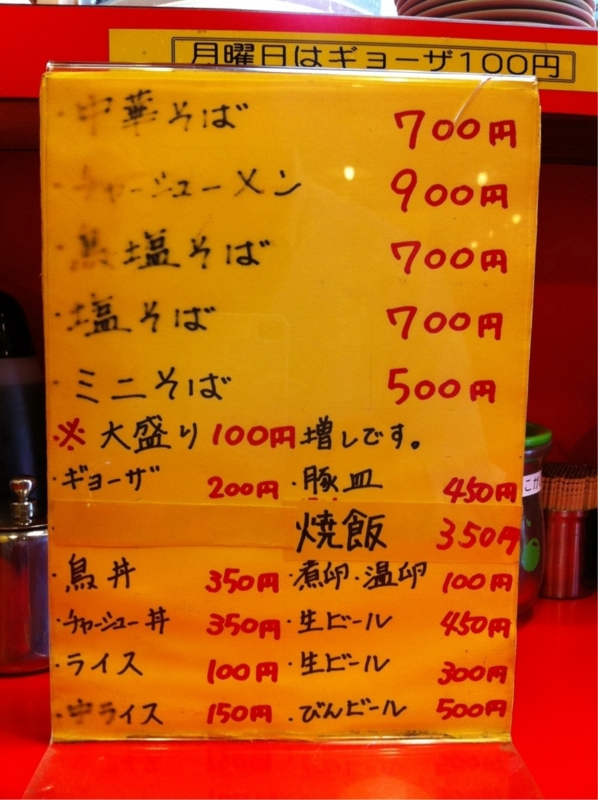 月曜日はギョーザ100円
・中華そば 700円
・チャーシューメン 900円
・鳥塩そば 700円
・塩そば 700円
・ミニそば 500円
※大盛り100円増しです。
・ギョーザ 200円 ・豚皿 450円
焼飯 350円
・鳥丼 350円 ・煮卵・温卵 100円
・チャーシュー丼 350円 ・生ビール 450円
・ライス 100円 ・生ビール 300円
・中ライス 150円 ・びんビール 500円